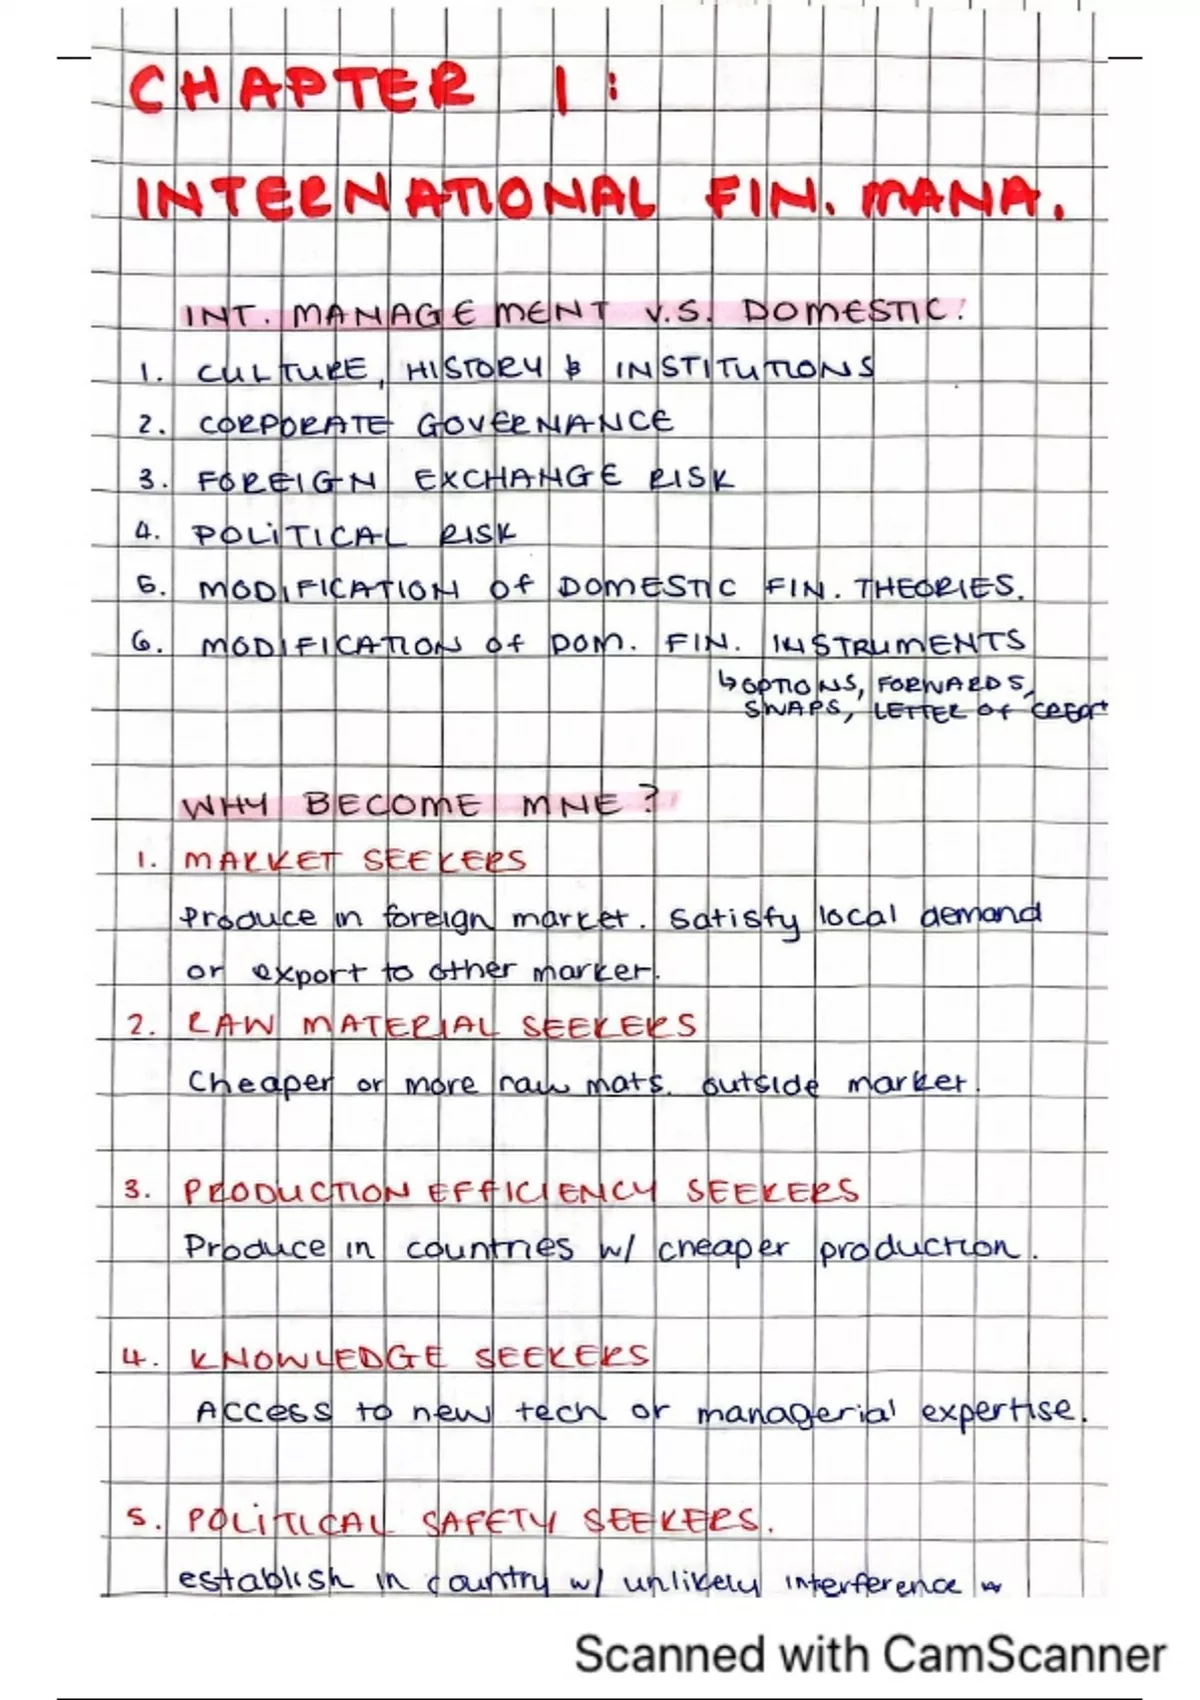 CHAPTER 1:
INTERNATIONAL FIN. MANA.
INT. MANAGEMENT V.S. DOMESTIC:
1. CULTURE, HISTORY & INSTITUTIONS
2. CORPORATE GOVERNANCE
3. FOREIGN EXCHANGE RISK
4. POLITICAL RISK
5. MODIFICATION Of DOMESTIC FIN. THEORIES.
6. MODIFICATION Of DOM. FIN. INSTRUMENTS
↳ OPTIONS, FORWARDS,
SWAPS, LETTER Of CREDIT
WHY BECOME MNE?
1. MARKET SEEKERS
Produce in foreign market. Satisfy local demand
or export to other market.
2. RAW MATERIAL SEEKERS
Cheaper or more raw mats. outside market.
3. PRODUCTION EFFICIENCY SEEKERS
Produce in countries w/ cheaper production.
4. KNOWLEDGE SEEKERS
Access to new tech or managerial expertise.
5. POLITICAL SAFETY SEEKERS.
establish in country w/ unlikely interference w
Scanned with CamScanner